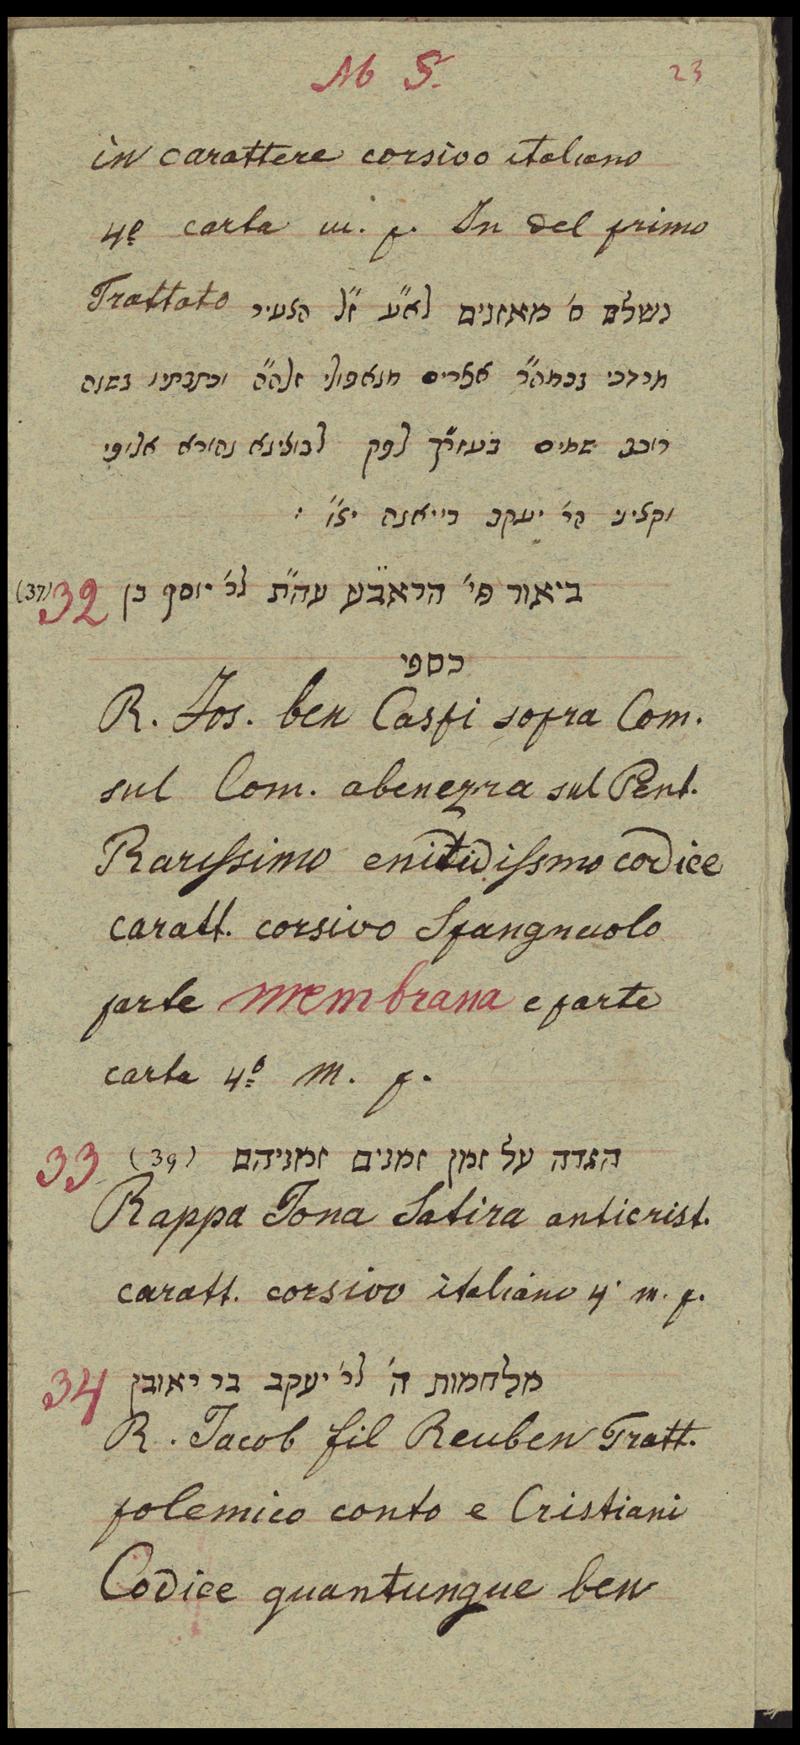 MS. 23
in carattere corsivo italiano
4º carta m. p. In del primo
Trattato נשלם ס' מאזנים לא"ע ז"ל הצעיר
מרדכי בכמה"ר אפרים מנאפולי זלה"ה וכתבתיו בשנת
רוכב שמים בעזרך לפק לבוצינא נהורא אלופי
וקציני הר' יעקב רייאנה יצ"ו :
(37) 32 ביאור פי' הראב"ע עה"ת לר' יוסף בן
כספי
R. Jos. ben Caspi sopra Com.
sul Com. abenezra sul Pent.
Rarissimo e nitidissmo codice
caratt. corsivo Spangnuolo
parte membrana e parte
carta 4º m. p.
33 (39) הגדה על זמן זמנים זמניהם
Rappa Jona Satira anticrist.
caratt. corsivo italiano 4º m. p.
34 מלחמות ה' לר' יעקב בר ראובן
R. Jacob fil Reuben Tratt.
polemico conto e Cristiani
Codice quantunque ben